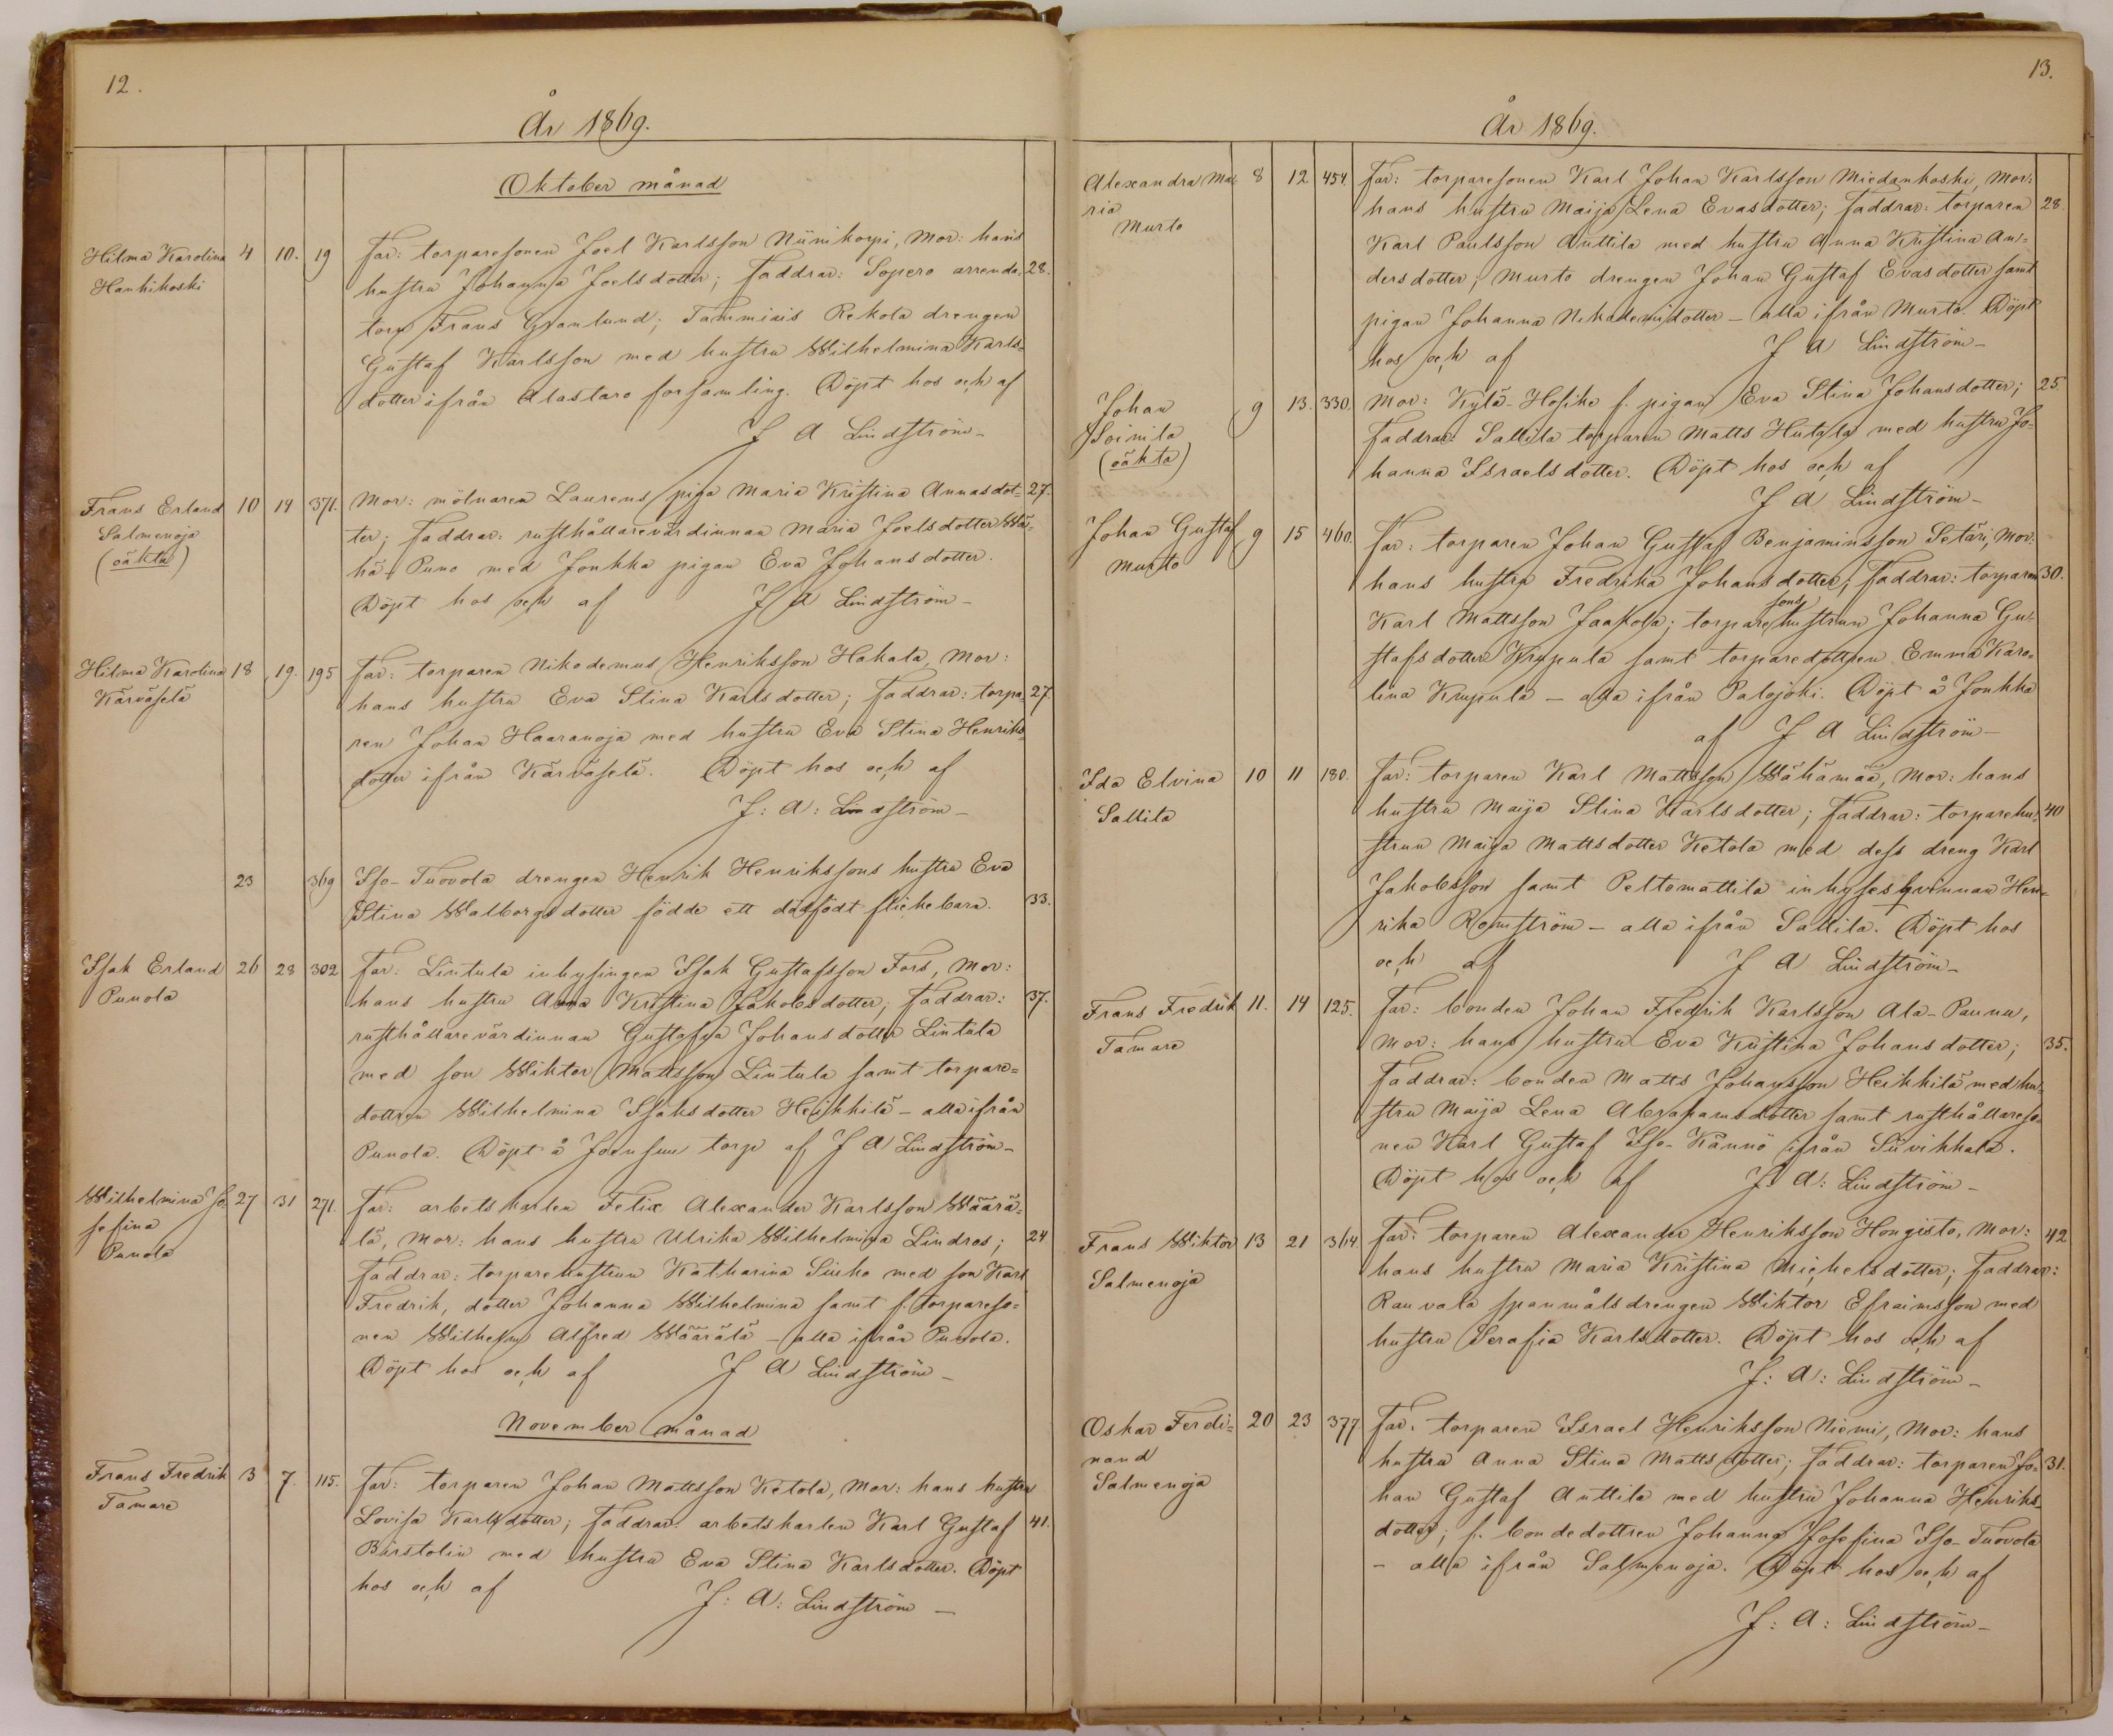 12.
År 1869.
Oktober månad
Hilma Karolina 4 10. 19 Far: torparesonen Joel Karlsson Niinikorpi, Mor: hans
Hankikoski hustru Johanna Joelsdotter; Faddrar: Sopero arrenda- 28.
torn Frans Granlund; Tammiais Rekola drengen
Gustaf Karlsson med hustru Wilhelmina Karls-
dotter ifrån Alastaro församling. Döpt hos och af
J A Lindström-
Frans Erland 10 14 371. Mor: mölnaren Laurens piga Maria Kristina Annasdot- 27.
Salmenoja ter; Faddrar: rusthållarevärdinnan Maria Joelsdotter Wä-
(oäkta) hä-Puno med Jonkka pigan Eva Johansdotter.
Döpt hos och af J A Lindström-
Hilma Karolina 18 19. 195 Far: torparen Nikodemus Henriksson Hakala, Mor:
Kärväselä hans hustru Eva Stina Karlsdotter; Faddrar: torpa- 27
ren Johan Haaranoja med hustru Eva Stina Henriks-
dotter ifrån Kärväselä. Döpt hos och af
J: A: Lindström-
23 369 Iso-Tuovola drengen Henrik Henrikssons hustru Eva
Stina Walborgsdotter födde ett dödfödt flickebarn. 33.
Isak Erland 26 28 302 Far: Lintula inhysingen Isak Gustafsson Fors, Mor:
Punola hans hustru Anna Kristina Jakobsdotter; Faddrar: 37.
rusthållarevärdinnan Gustafva Johansdotter Lintula
med son Wiktor Mattsson Lintula samt torpare-
dottren Wilhelmina Isaksdotter Heikkilä - alla ifrån
Punola. Döpt å torp af J A Lindström-
Wilhelmina Jo- 27 31 271. Far: arbetskarlen Felix Alexander Karlsson Wäärä-
sefina lä, Mor: hans hustru Ulrika Wilhelmina Lindros; 24
Punola Faddrar: torparehustrun Katharina Sinko med son Karl
Fredrik, dotter Johanna Wilhelmina samt f. torpareso-
nen Wilhelm Alfred Wäärälä - alla ifrån Punola.
Döpt hos och af J A Lindström-
November månad
Frans Fredrik 3 7. 115. Far: torparen Johan Mattsson Ketola, Mor: hans hustru
Tamare Lovisa Karlsdotter; Faddrar: arbetskarlen Karl Gustaf 41.
Bärstolin med hustru Eva Stina Karlsdotter. Döpt
hos och af J: A: Lindström-
13.
År 1869.
Alexandra Ma- 8 12 454. Far: torparesonen Karl Johan Karlsson Miedankoski, Mor:
ria hans hustru Maija Lena Evasdotter; Faddrar: torparen 28.
Murto Karl Paulsson Anttila med hustru Anna Kristina An-
dersdotter; Murto drengen Johan Gustaf Evasdotter samt
pigan Johanna Nikodemidotter - alla ifrån Murto. Döpt
hos och af J A Lindström-
Johan 9 13. 330. Mor: Kylä-Hosike f. pigan Eva Stina Johansdotter; 25
Soinila Faddrar: Sallila torparen Matts Hutala med hustru Jo-
(oäkta) hanna Israelsdotter. Döpt hos och af
J A Lindström-
Johan Gustaf 9 15 460. Far: torparen Johan Gustaf Benjaminsson Setäri, Mor:
Murto hans hustru Fredrika Johansdotter; Faddrar: torparen 30.
Karl Mattsson Jaakola; torparesonshustrun Johanna Gu-
stafsdotter Krupula samt torparedottren Emma Karo-
lina Krupula - alla ifrån Palojoki. Döpt å Jonkka
af J A Lindström-
Ida Elvina 10 11 180. Far: torparen Karl Mattsson Wähämaa, Mor: hans
Sallila hustru Maija Stina Karlsdotter; Faddrar: torparehu- 40
strun Maija Mattsdotter Ketola med dess dreng Karl
Jakobsson samt Peltomattila inhysesqvinnan Hen-
rika Romström - alla ifrån Sallila. Döpt hos
och af J A Lindström-
Frans Fredrik 11. 14 125. Far: bonden Johan Fredrik Karlsson Ala-Pannu,
Tamare Mor: hans hustru Eva Kristina Johansdotter; 35.
Faddrar: bonden Matts Johansson Heikkilä med hu-
stru Maija Lena Abrahamsdotter samt rusthållareso-
nen Karl Gustaf Iso-Kännö ifrån Suvikkala.
Döpt hos och af J: A: Lindström-
Frans Wiktor 13 21 364. Far: torparen Alexander Henriksson Hongisto, Mor: 42
Salmenoja hans hustru Maria Kristina Michelsdotter; Faddrar:
Rauvala spanmålsdrengen Wiktor Efraimsson med
hustru Serafia Karlsdotter. Döpt hos och af
J: A: Lindström-
Oskar Ferdi- 20 23 377. Far: torparen Israel Henriksson Niemi, Mor: hans
nand hustru Anna Stina Mattsdotter; Faddrar: torparen Jo- 31.
Salmenoja han Gustaf Anttila med hustru Johanna Henriks-
dotter; f. bondedottren Johanna Josefina Iso-Tuovola
- alla ifrån Salmenoja. Döpt hos och af
J: A: Lindström-